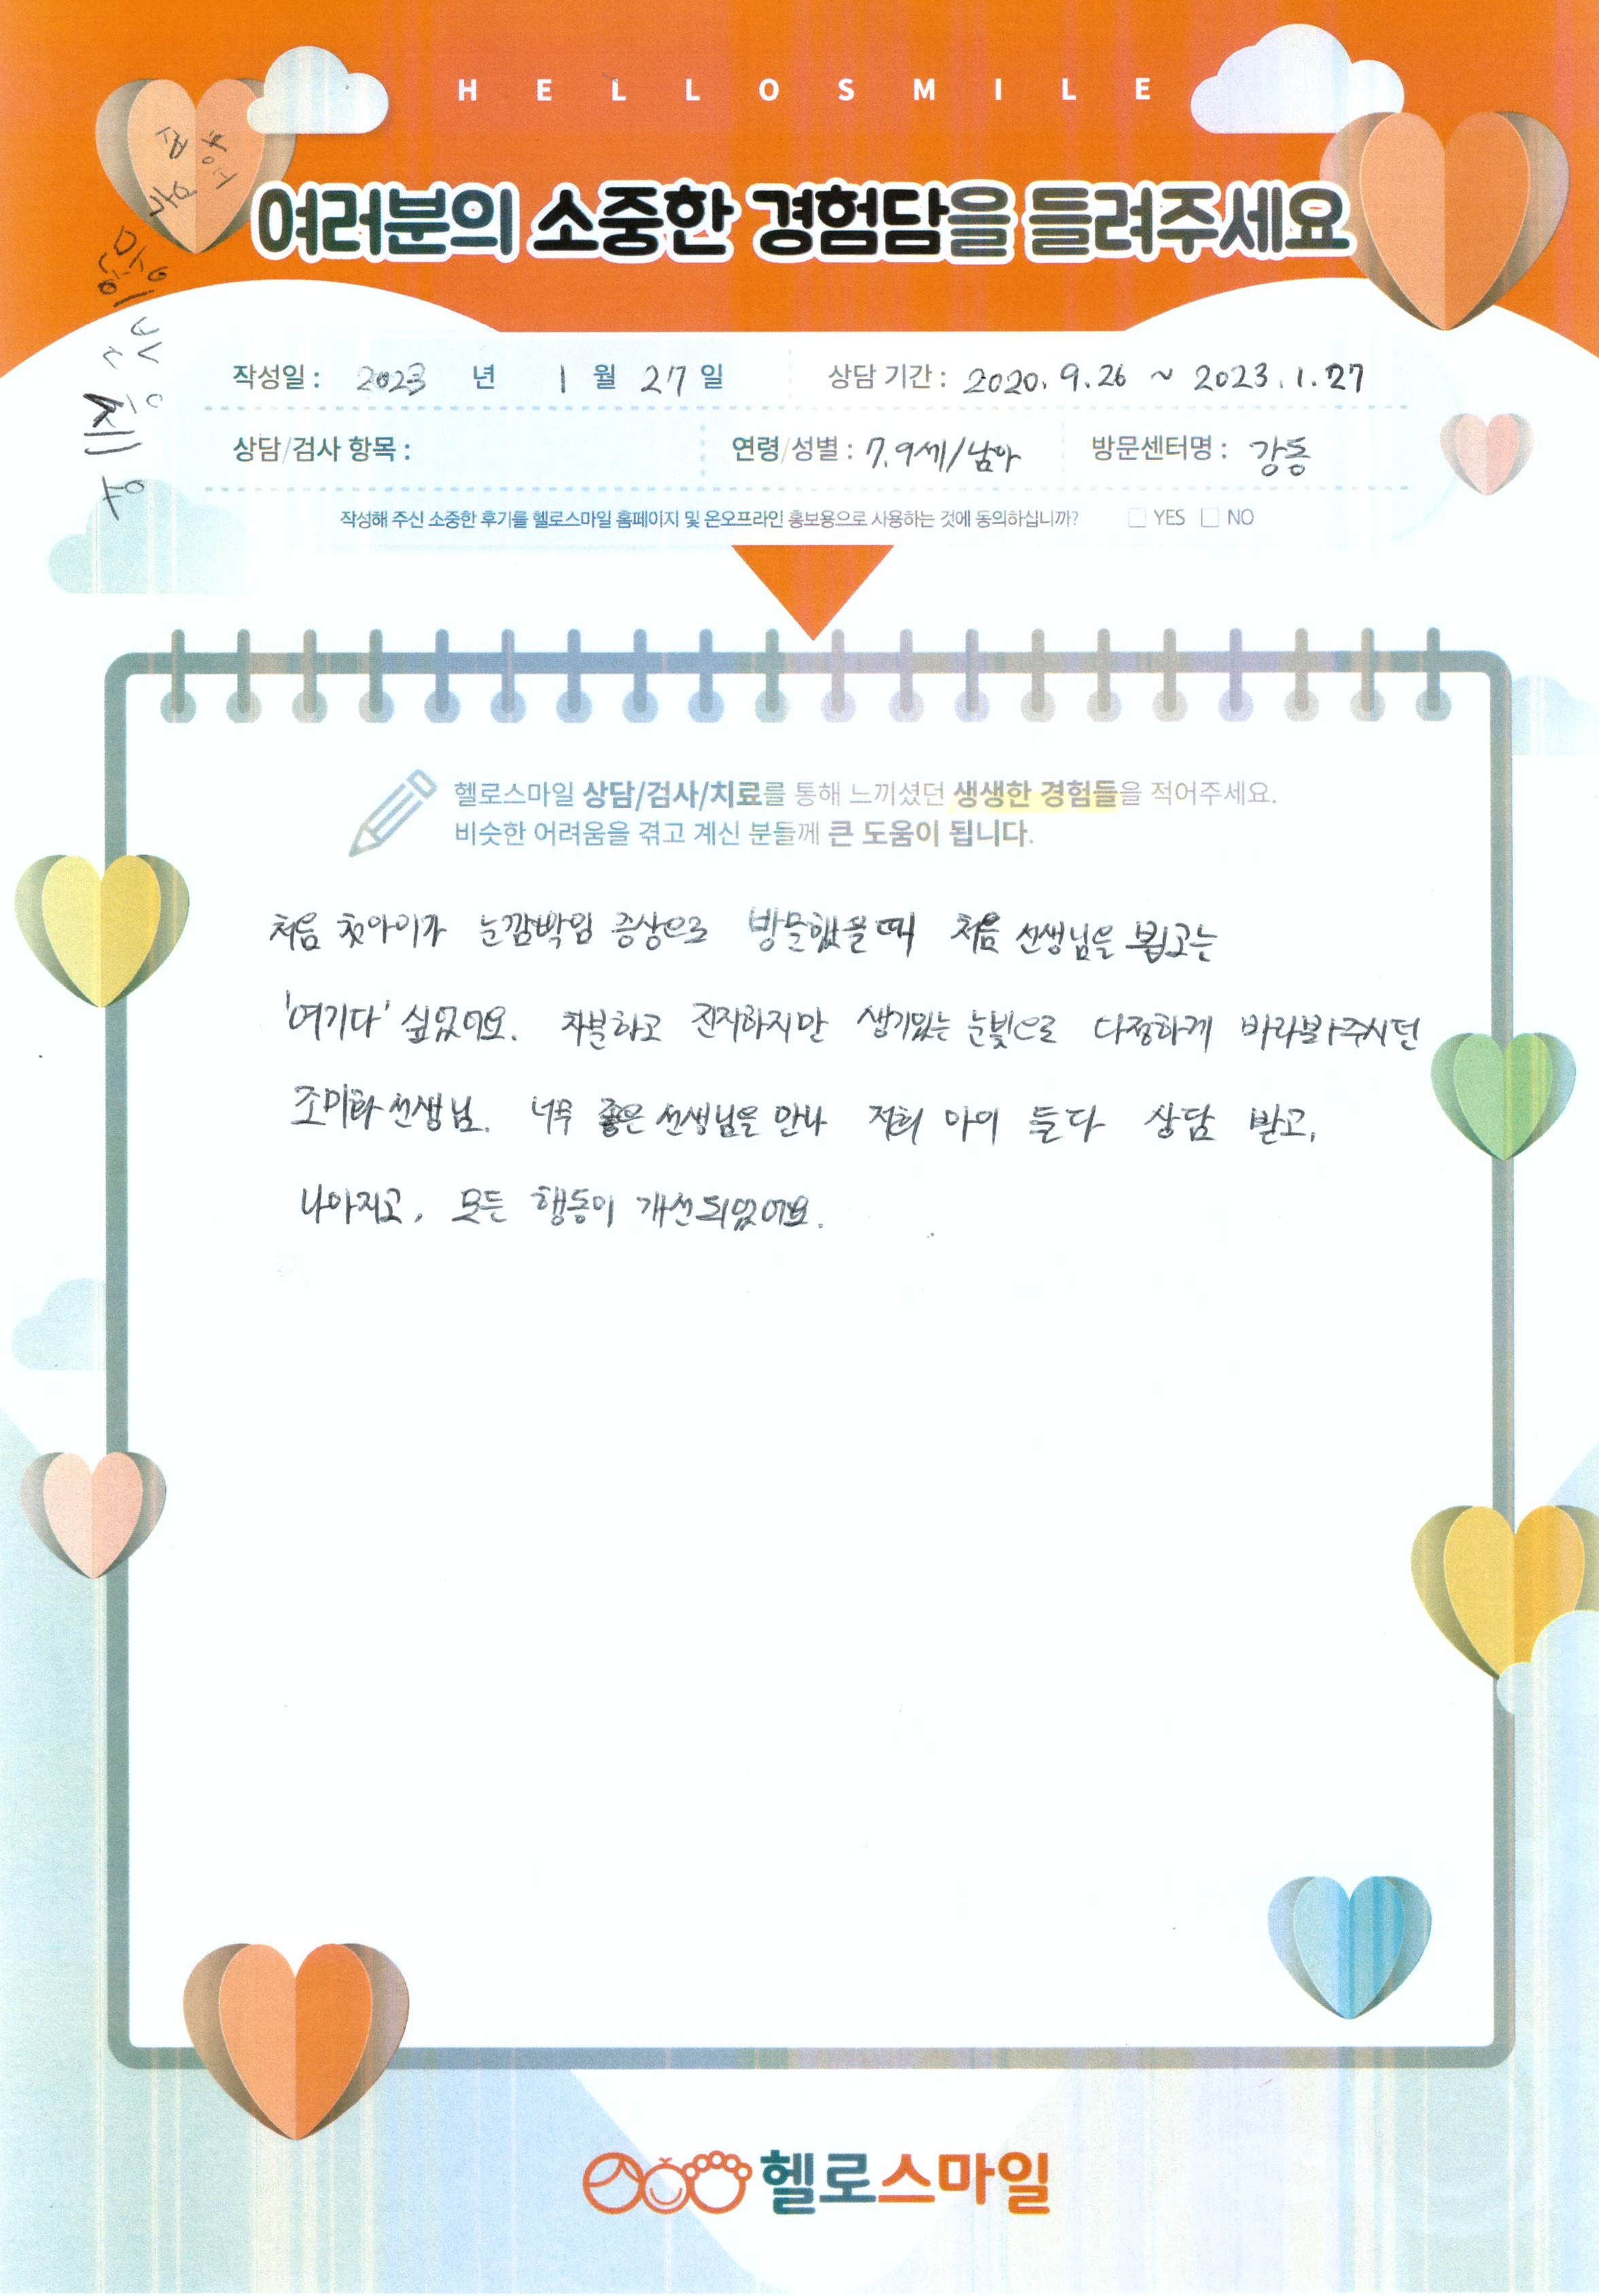 HELLOSMILE
여러분의 소중한 경험담을 들려주세요
작성일 : 2023 년 1 월 27 일 상담 기간 : 2020. 9. 26 ~ 2023. 1. 27
상담/검사 항목 : 연령/성별 : 7, 9세/남아 방문센터명 : 강동
작성해 주신 소중한 후기를 헬로스마일 홈페이지 및 온오프라인 홍보용으로 사용하는 것에 동의하십니까? YES NO
헬로스마일 상담/검사/치료를 통해 느끼셨던 생생한 경험들을 적어주세요.
비슷한 어려움을 겪고 계신 분들께 큰 도움이 됩니다.
처음 첫아이가 눈깜빡임 증상으로 방문했을때 처음 선생님을 뵙고는
'여기다' 싶었어요. 차분하고 진지하지만 생기있는 눈빛으로 다정하게 바라봐주시던
조미화 선생님. 너무 좋은 선생님을 만나 저희 아이 둘다 상담 받고,
나아지고, 모든 행동이 개선되었어요.
헬로스마일